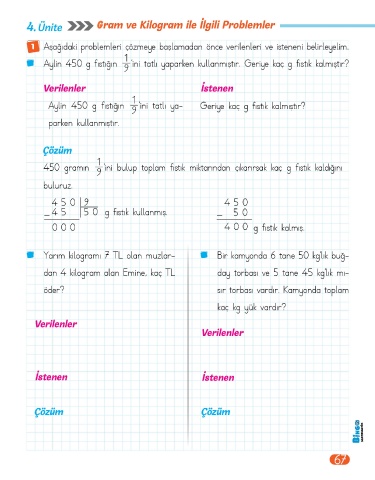 4. Ünite
Gram ve Kilogram ile İlgili Problemler
1 Aşağıdaki problemleri çözmeye başlamadan önce verilenleri ve isteneni belirleyelim.
Aylin 450 g fıstığın 1/9 'ini tatlı yaparken kullanmıştır. Geriye kaç g fıstık kalmıştır?
Verilenler
Aylin 450 g fıstığın 1/9 'ini tatlı ya-
parken kullanmıştır.
İstenen
Geriye kaç g fıstık kalmıştır?
Çözüm
450 gramın 1/9 'ini bulup toplam fıstık miktarından çıkarırsak kaç g fıstık kaldığını
buluruz.
450 | 9
- 45 | 50 g fıstık kullanmış.
000
450
- 50
400 g fıstık kalmış.
Yarım kilogramı 7 TL olan muzlar-
dan 4 kilogram alan Emine, kaç TL
öder?
Verilenler
İstenen
Çözüm
Bir kamyonda 6 tane 50 kg'lık buğ-
day torbası ve 5 tane 45 kg'lık mı-
sır torbası vardır. Kamyonda toplam
kaç kg yük vardır?
Verilenler
İstenen
Çözüm
67